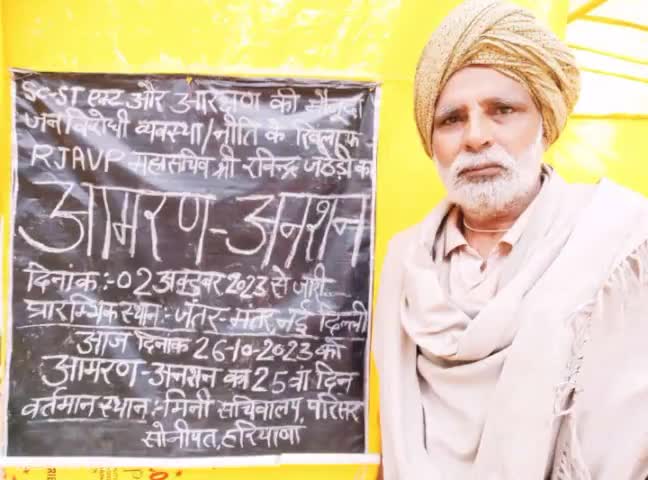 SC-ST एक्ट और आरक्षण की मौजूदा
जनविरोधी व्यवस्था/नीति के खिलाफ
RJAVP महासचिव श्री रविन्द्र जठेड़ी का
आमरण-अनशन
दिनांक:-02 अक्टूबर 2023 से जारी...
प्रारम्भिक स्थान:- जंतर-मंतर, नई दिल्ली
आज दिनांक 26-10-2023 को
आमरण-अनशन का 25 वां दिन
वर्तमान स्थान:- मिनी सचिवालय, परिसर
सोनीपत, हरियाणा